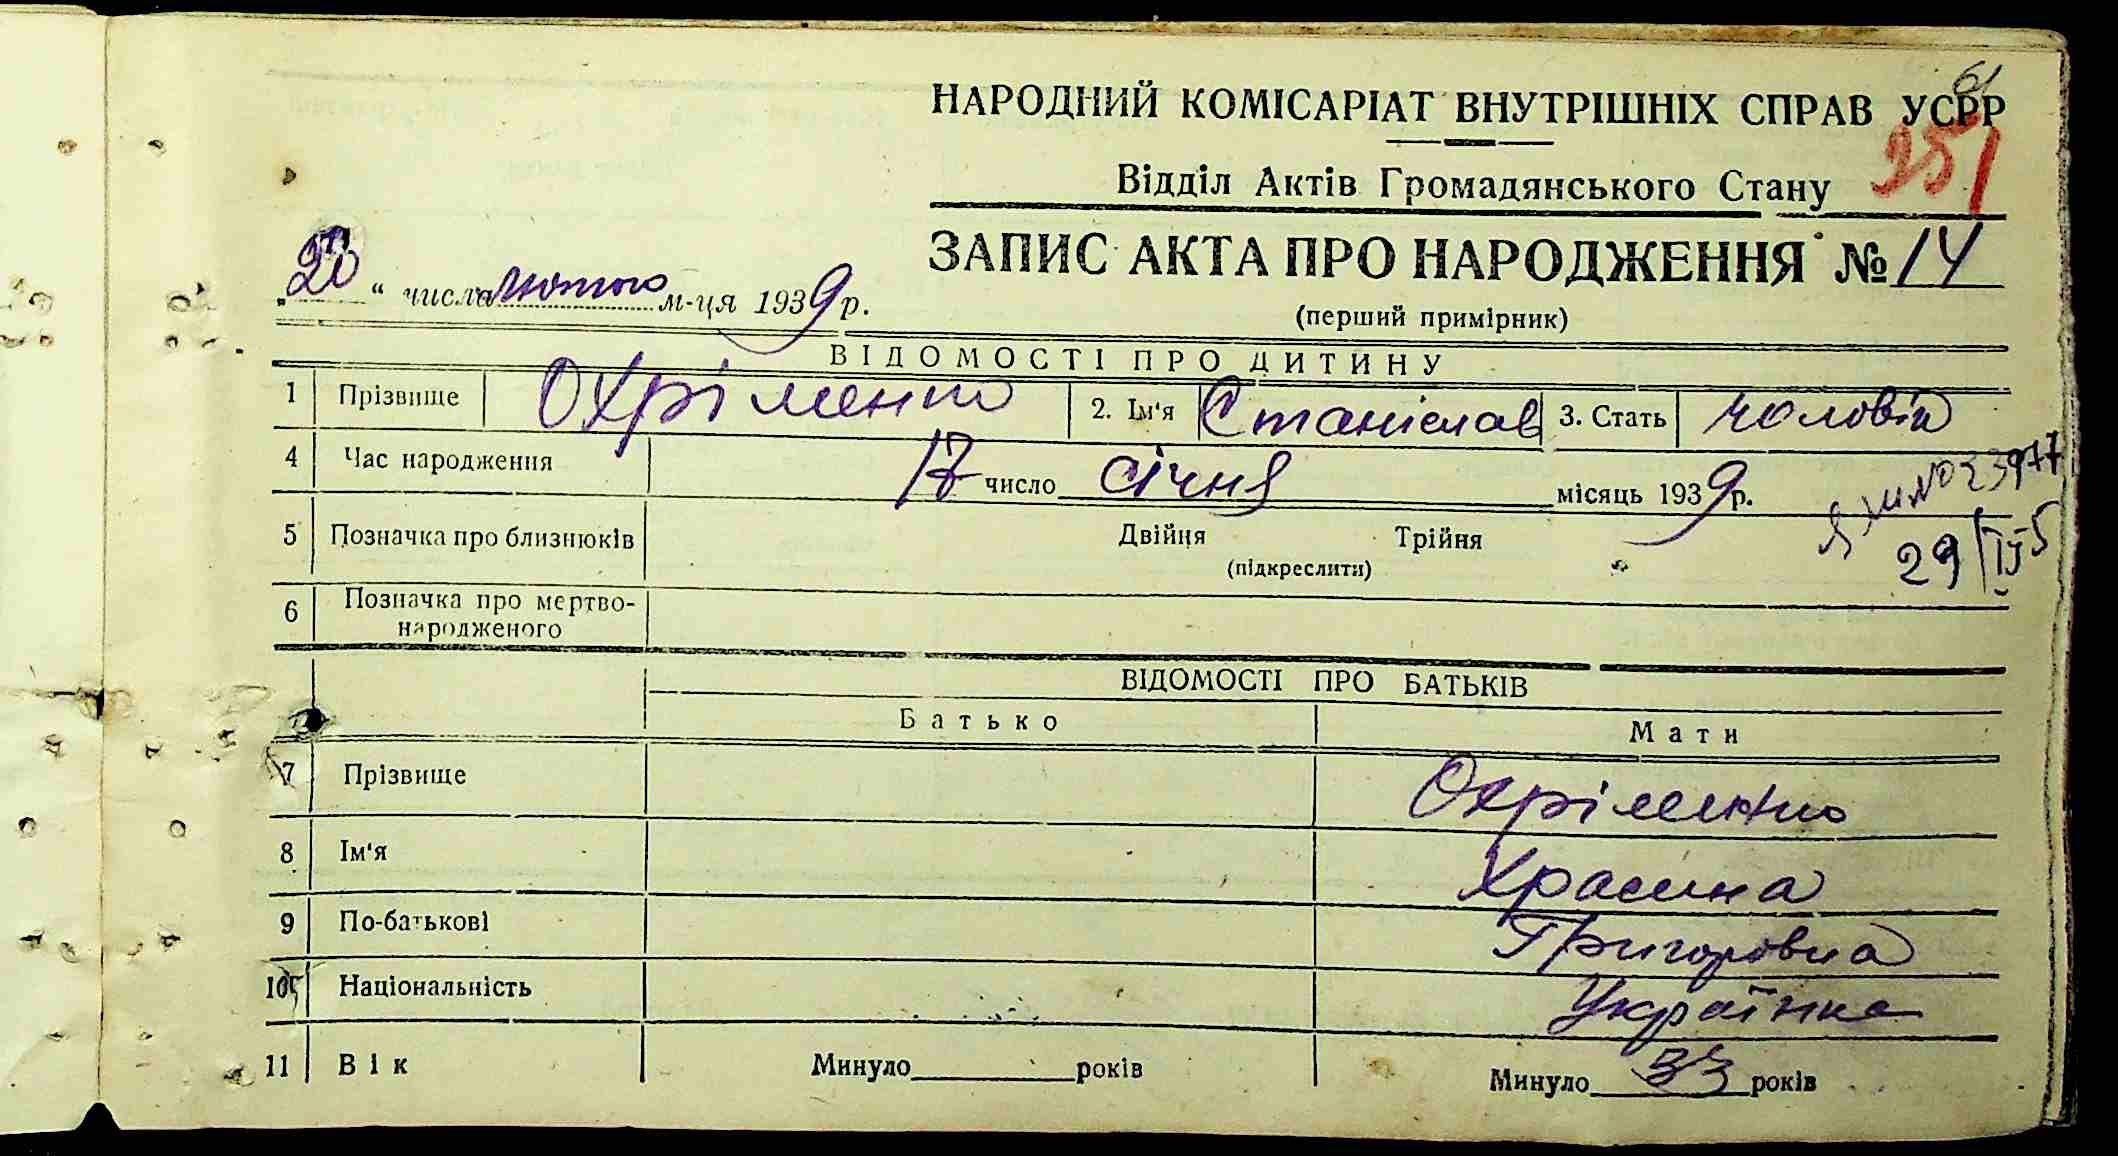 61
НАРОДНИЙ КОМІСАРІАТ ВНУТРІШНІХ СПРАВ УСРР
251
Відділ Актів Громадянського Стану
ЗАПИС АКТА ПРО НАРОДЖЕННЯ № 14
„20" числа лютого м-ця 1939 р.
(перший примірник)
ВІДОМОСТІ ПРО ДИТИНУ
1 Прізвище Охріменко 2. Ім'я Станіслав 3. Стать чоловіч
4 Час народження 17 число січня місяць 1939 р.
№023977
5 Позначка про близнюків Двійня Трійня
(підкреслити)
29/IV 5
6 Позначка про мертво-
народженого
ВІДОМОСТІ ПРО БАТЬКІВ
Батько Мати
7 Прізвище Охріменко
8 Ім'я
9 По-батькові Григоровна
10 Національність Українка
11 Вік Минуло років Минуло 33 років